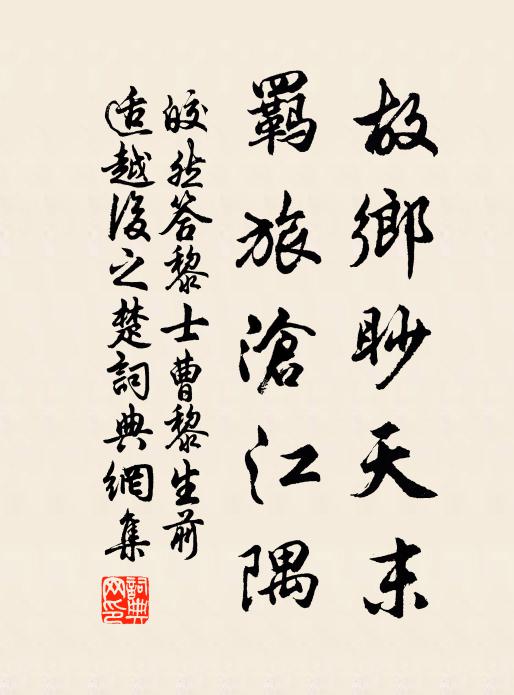 故鄉眇天末
羈旅滄江隅
皎然答黎士曹黎生前
适越後之楚詞典網集
詞典網印